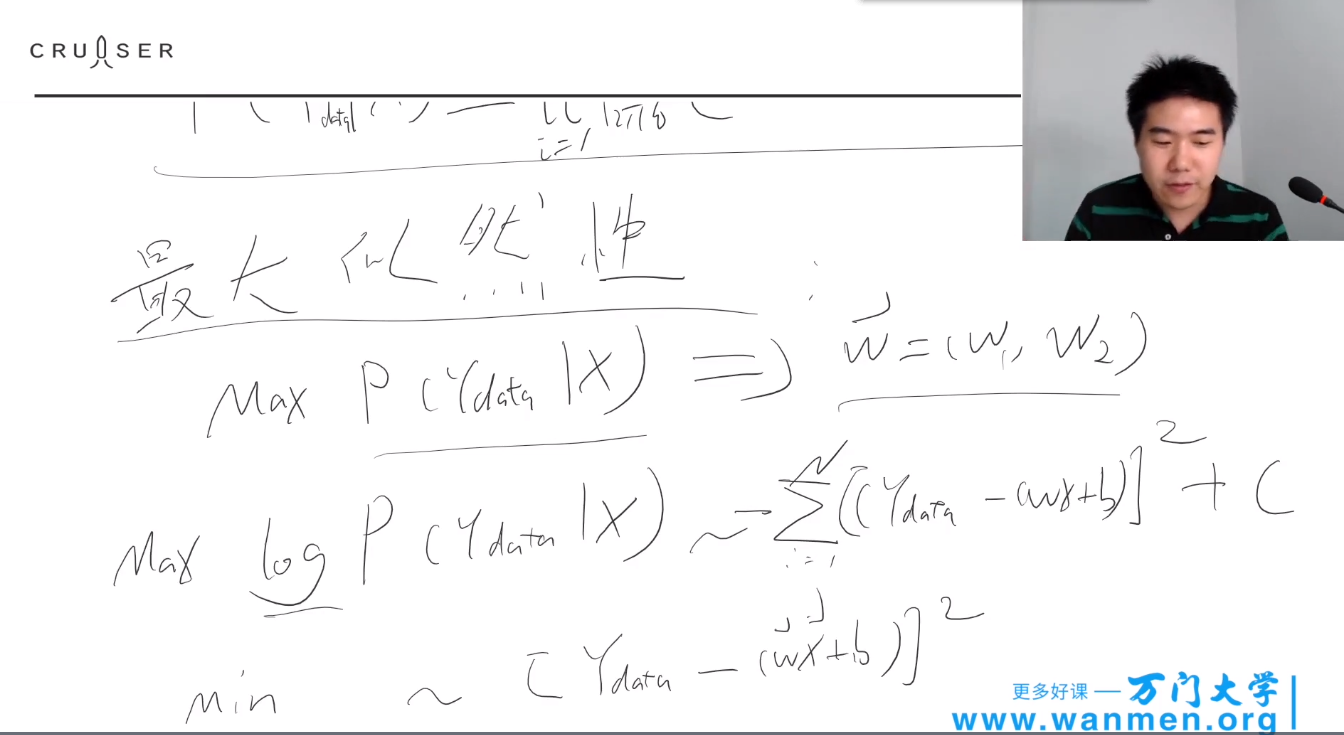 CRUISER
i=1
最大似然性
Max P(Ydata|X) => w=(w1, w2)
Max log P(Ydata|X) ~ -∑ i=1 N [(Ydata-(wx+b)]² + C
min ~ [Ydata-(wx+b)]²
更多好课 — 万门大学
www.wanmen.org